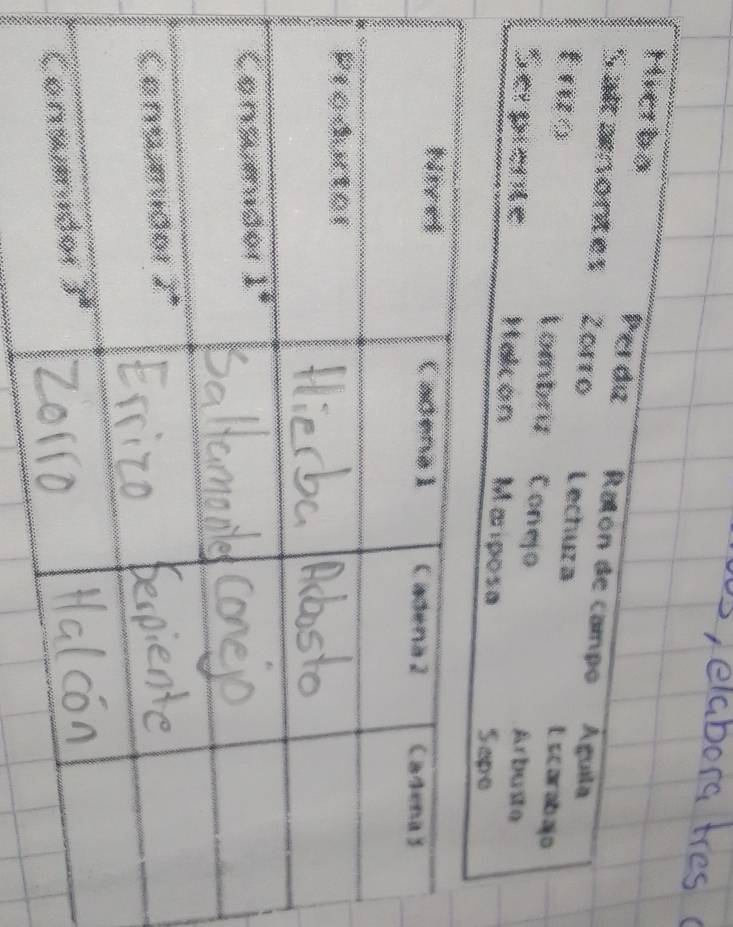 , elabora tres
Hierba Perdiz Ratón de campo Aguila
Saltamontes Zorro Lechuza Escarabajo
Erizo Lombriz Conejo Arbusto
Serpiente Halcón Mariposa Sapo
Nivel Cadena 1 Cadena 2 Cadena 3
Productor Hierba Arbosto
Consumidor 1° Saltamontes Conejo
Consumidor 2° Errizo Serpiente
Consumidor 3° Zorro Halcón